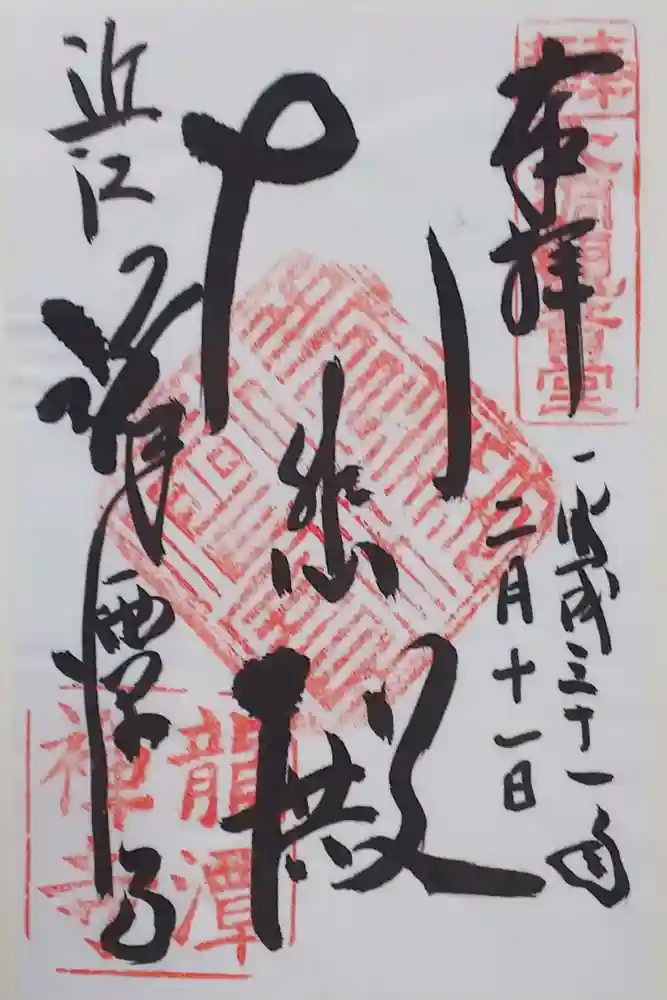 奉拝
平成三十一年
二月十一日
大悲殿
近江 龍潭寺
龍潭
禪寺